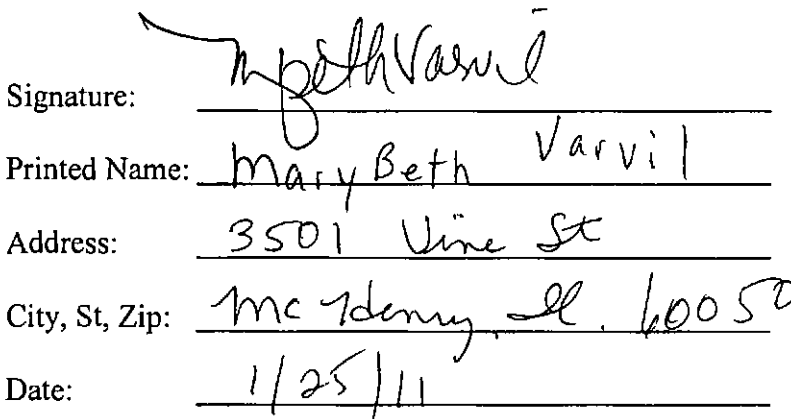 Signature: MBeth Varvil
Printed Name: Mary Beth Varvil
Address: 3501 Vine St
City, St, Zip: McHenry, Il. 60050
Date: 1/25/11